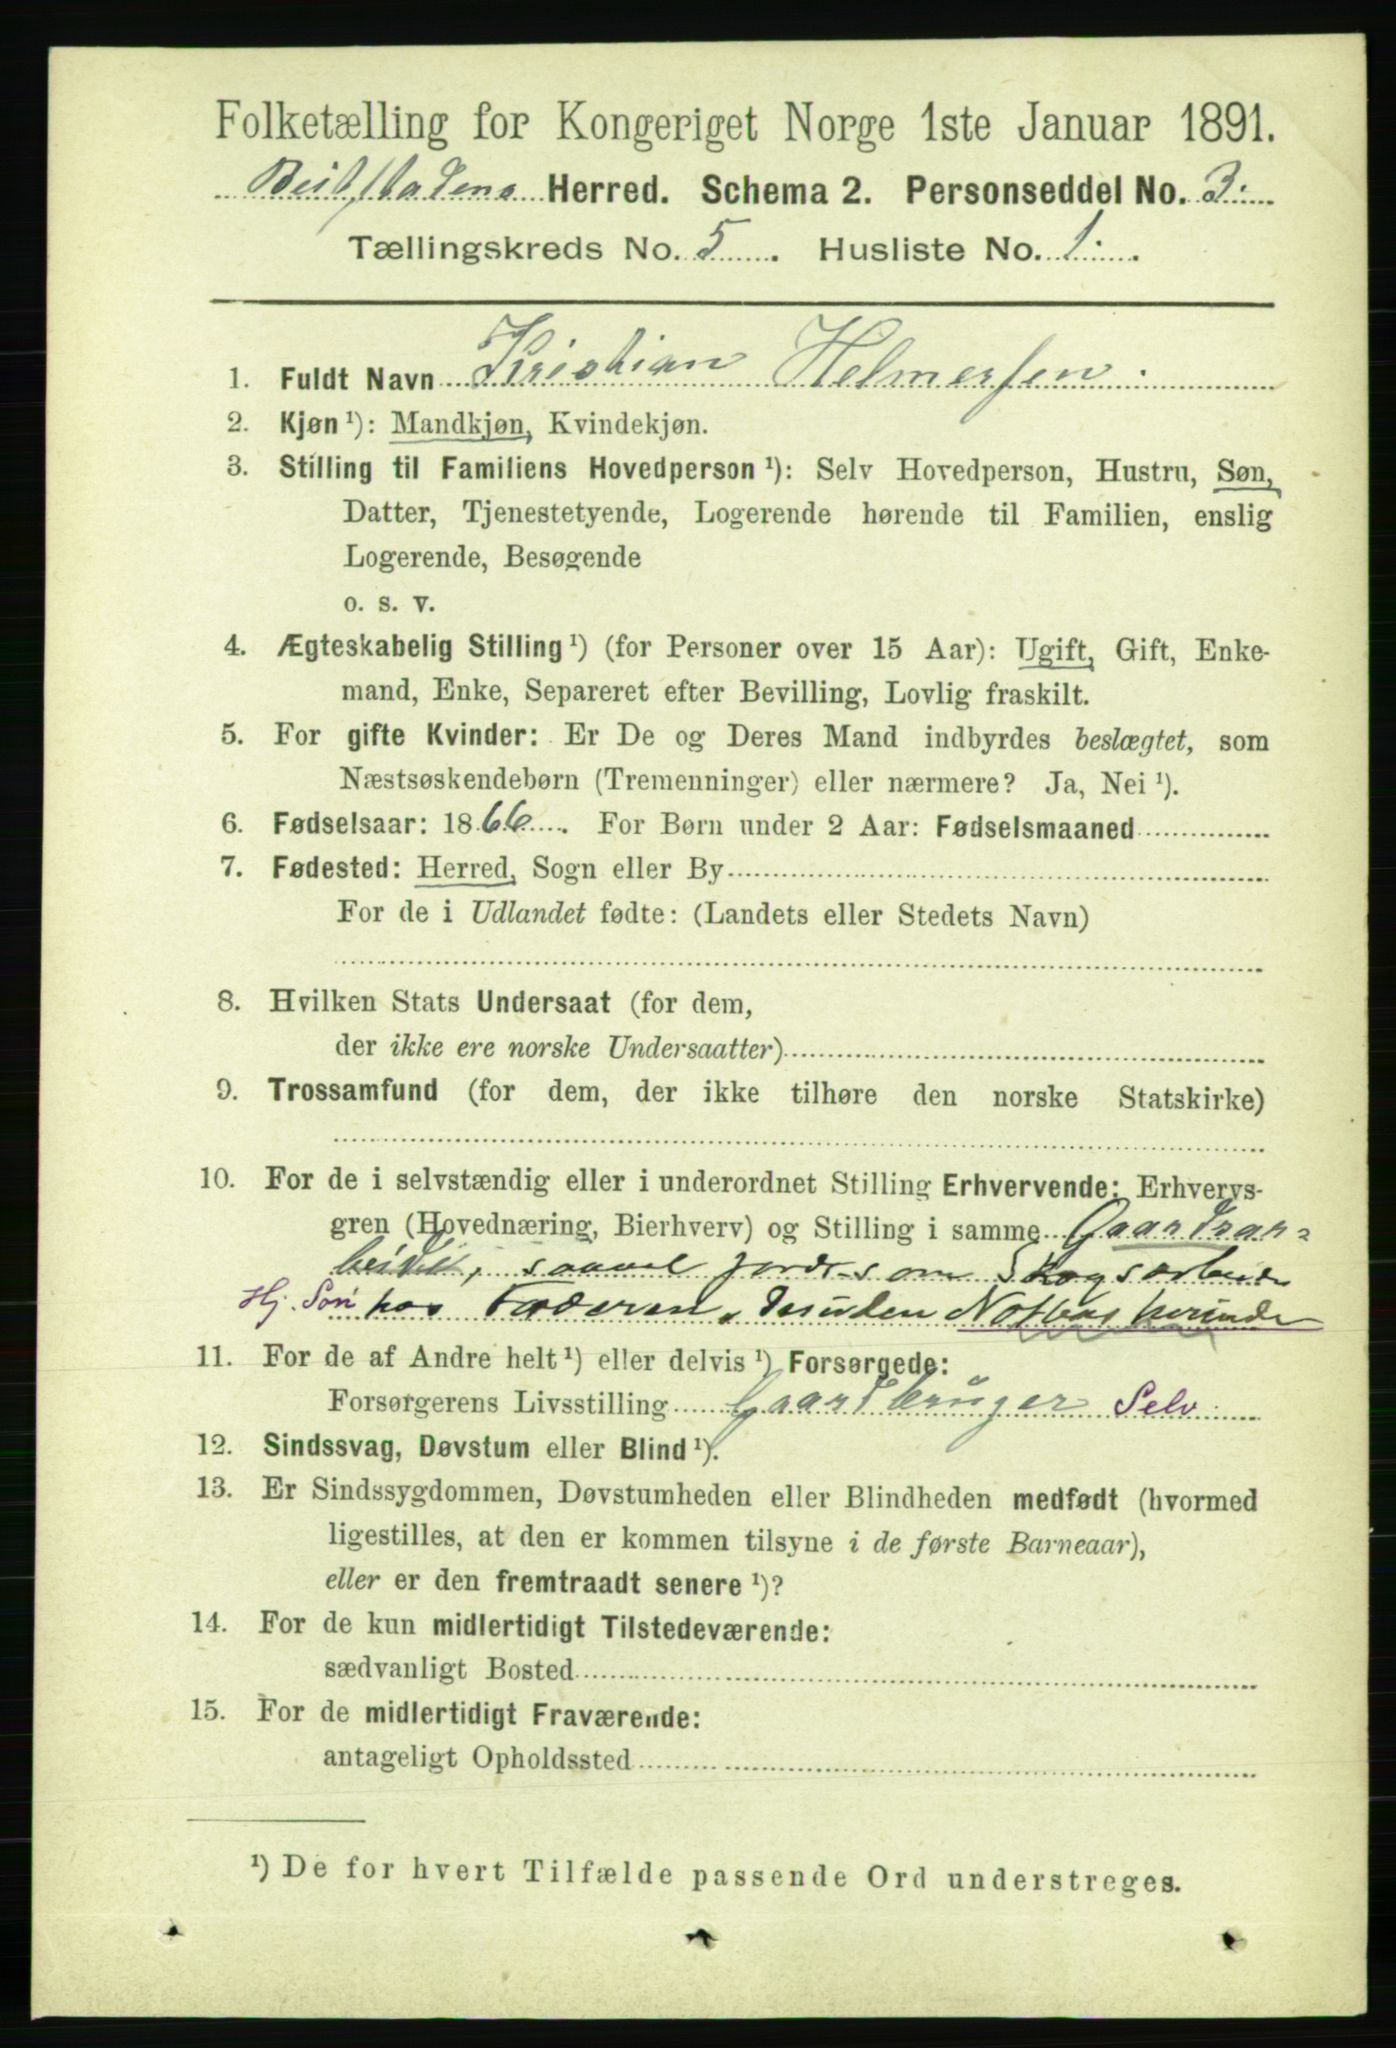 Folketælling for Kongeriget Norge 1ste Januar 1891.
Beitstadens Herred. Schema 2. Personseddel No. 3.
Tællingskreds No. 5. Husliste No. 1.
1. Fuldt Navn Kristian Helmersen.
2. Kjøn ¹): Mandkjøn, Kvindekjøn.
3. Stilling til Familiens Hovedperson ¹): Selv Hovedperson, Hustru, Søn,
Datter, Tjenestetyende, Logerende hørende til Familien, enslig
Logerende, Besøgende
o. s. v.
4. Ægteskabelig Stilling ¹) (for Personer over 15 Aar): Ugift, Gift, Enke-
mand, Enke, Separeret efter Bevilling, Lovlig fraskilt.
5. For gifte Kvinder: Er De og Deres Mand indbyrdes beslægtet, som
Næstsøskendebørn (Tremenninger) eller nærmere? Ja, Nei ¹).
6. Fødselsaar: 1866. For Børn under 2 Aar: Fødselsmaaned
7. Fødested: Herred, Sogn eller By
For de i Udlandet fødte: (Landets eller Stedets Navn)
8. Hvilken Stats Undersaat (for dem,
der ikke ere norske Undersaatter)
9. Trossamfund (for dem, der ikke tilhøre den norske Statskirke)
10. For de i selvstændig eller i underordnet Stilling Erhvervende: Erhvervs-
gren (Hovednæring, Bierhverv) og Stilling i samme Gaardsar-
beide, saavel Jords som Skogsarbeide
Hj. Søn hos Faderen, desuden
11. For de af Andre helt ¹) eller delvis ¹) Forsørgede:
Forsørgerens Livsstilling Gaardbruger Selv
12. Sindssvag, Døvstum eller Blind ¹).
13. Er Sindssygdommen, Døvstumheden eller Blindheden medfødt (hvormed
ligestilles, at den er kommen tilsyne i de første Barneaar),
eller er den fremtraadt senere ¹)?
14. For de kun midlertidigt Tilstedeværende:
sædvanligt Bosted
15. For de midlertidigt Fraværende:
antageligt Opholdssted
¹) De for hvert Tilfælde passende Ord understreges.